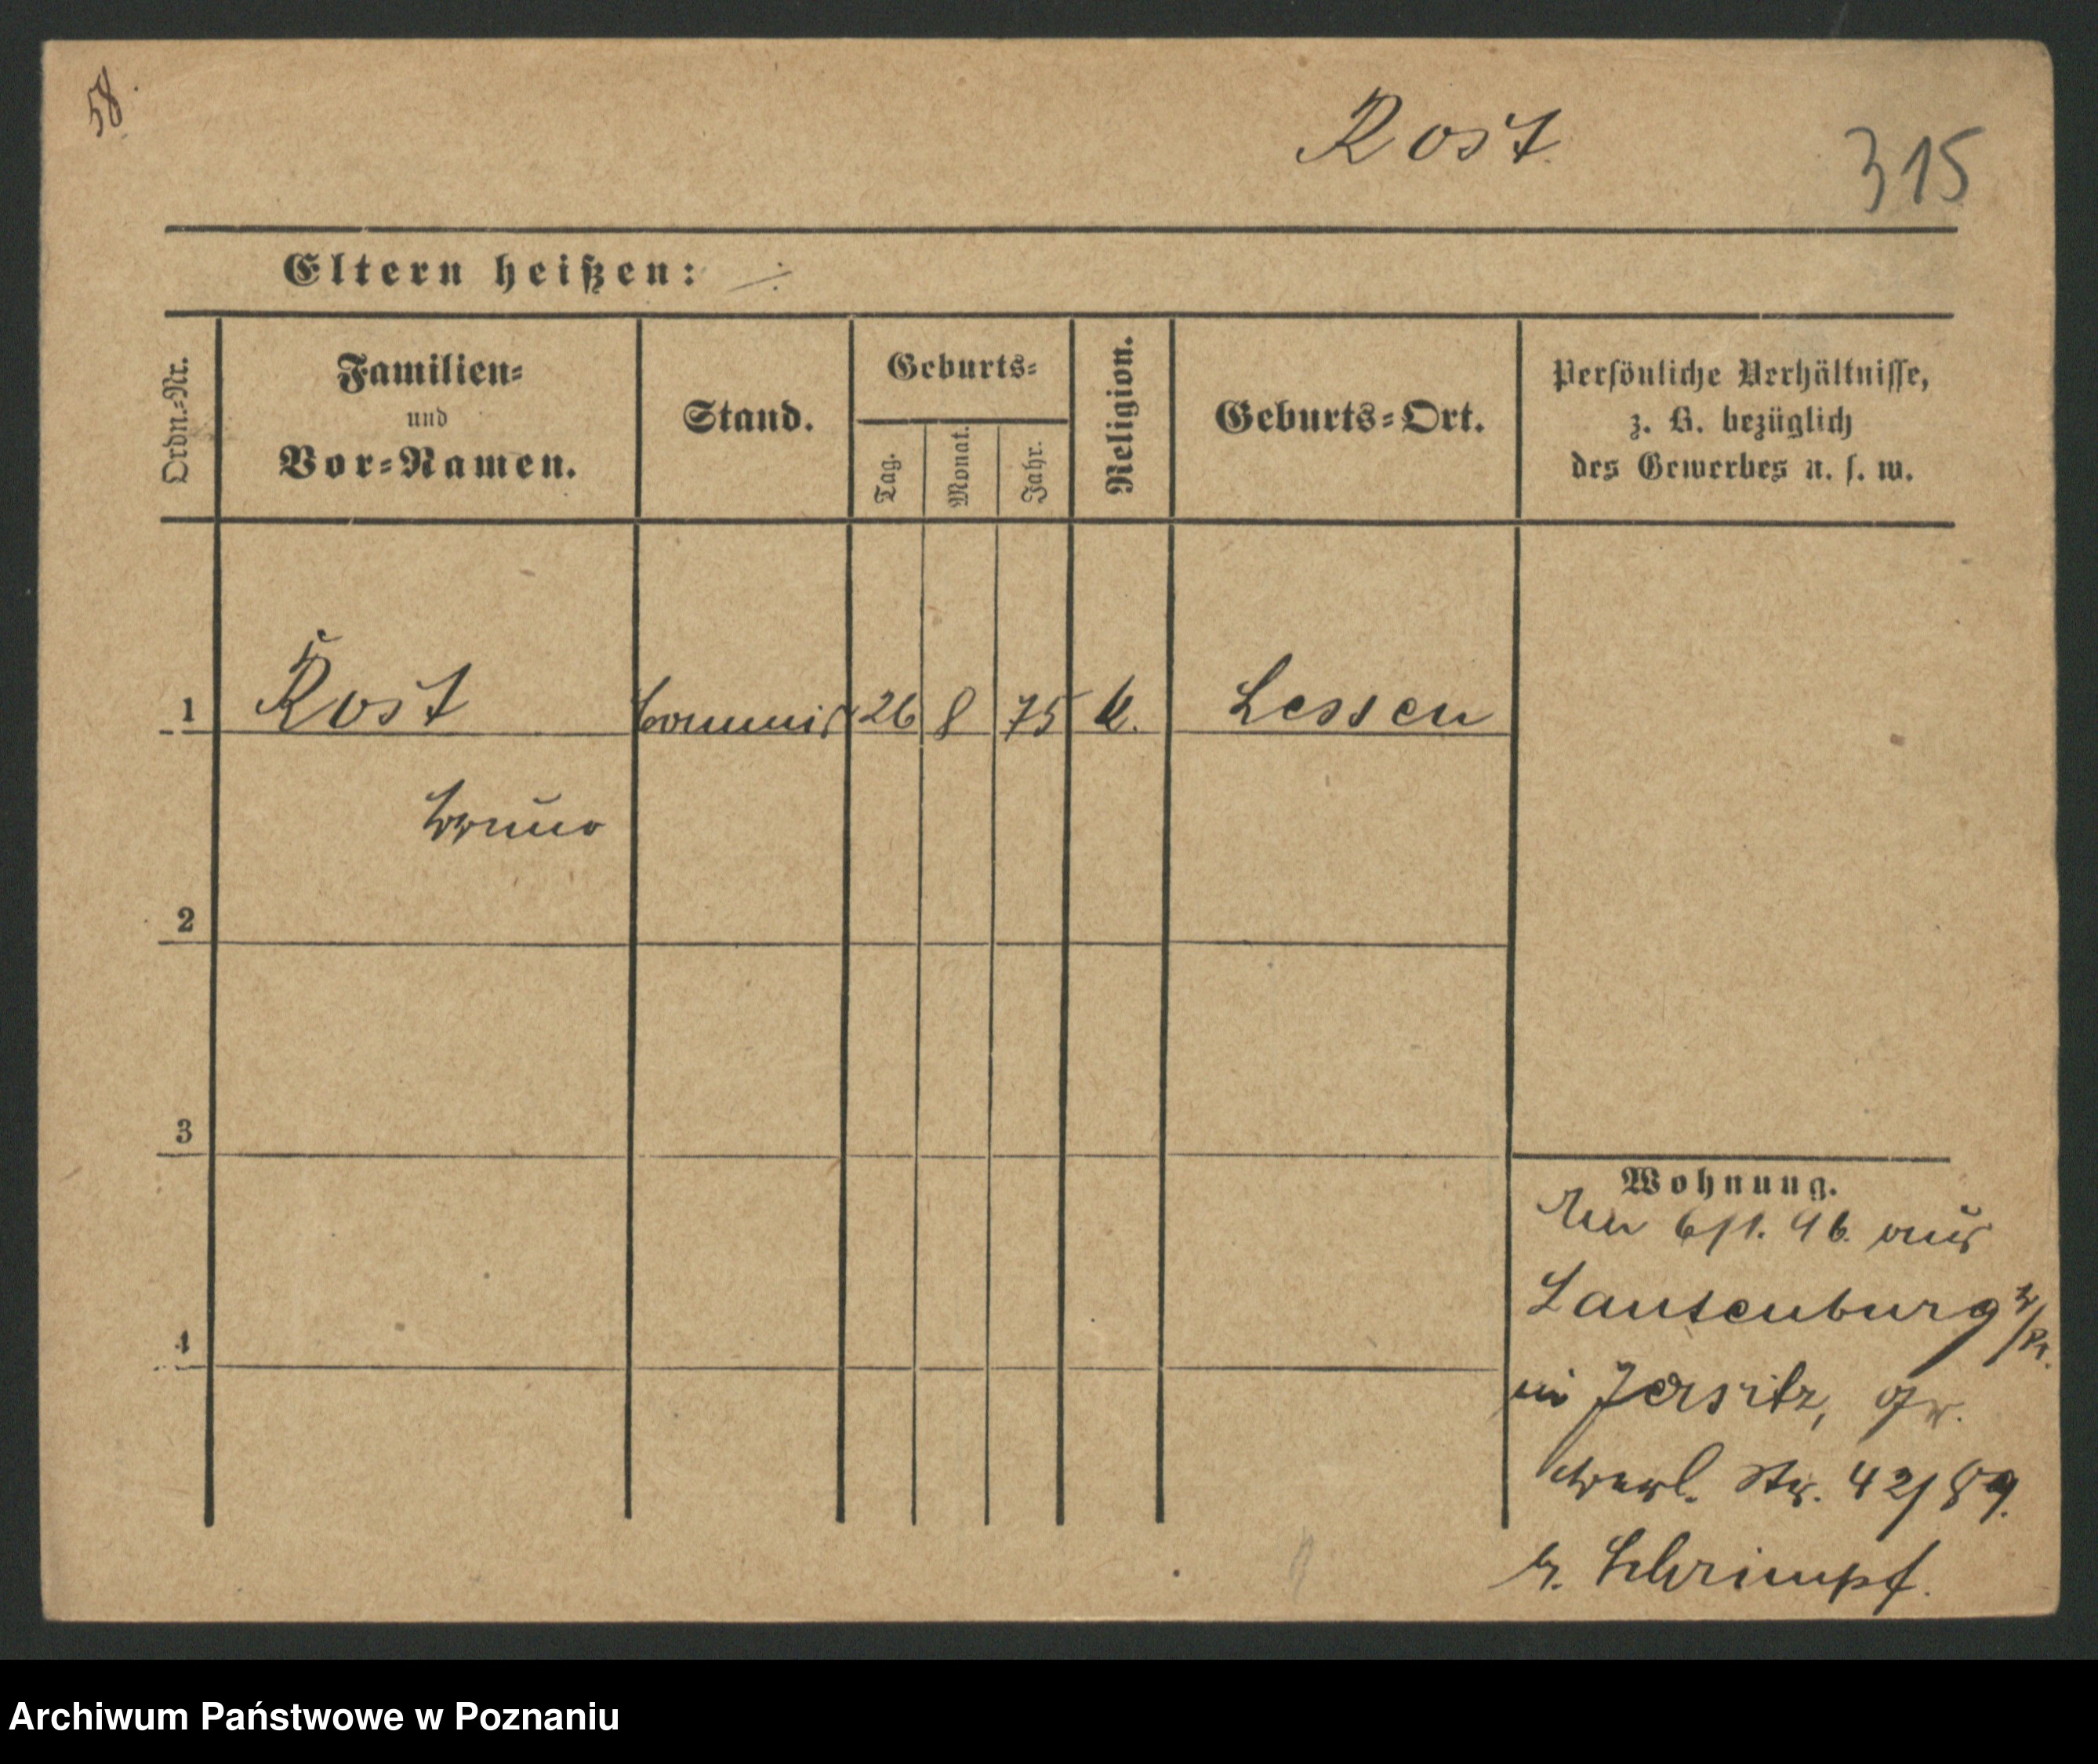 58.
Rost.
315
Eltern heißen: ÷
Ordn.-Nr.
Familien-
und
Vor-Namen.
Stand.
Geburts-
Tag.
Monat.
Jahr.
Religion.
Geburts-Ort.
Persönliche Verhältnisse,
z. B. bezüglich
des Gewerbes u. s. w.
1 Rost Commis 26 8 75 k. Lessen
Bruno
2
3
4
Wohnung.
6/1. 96. aus
Lautenburg W/Pr.
in Jersitz, Gr.
Berl. Str. 42/89.
b. Schrimpf.
Archiwum Państwowe w Poznaniu